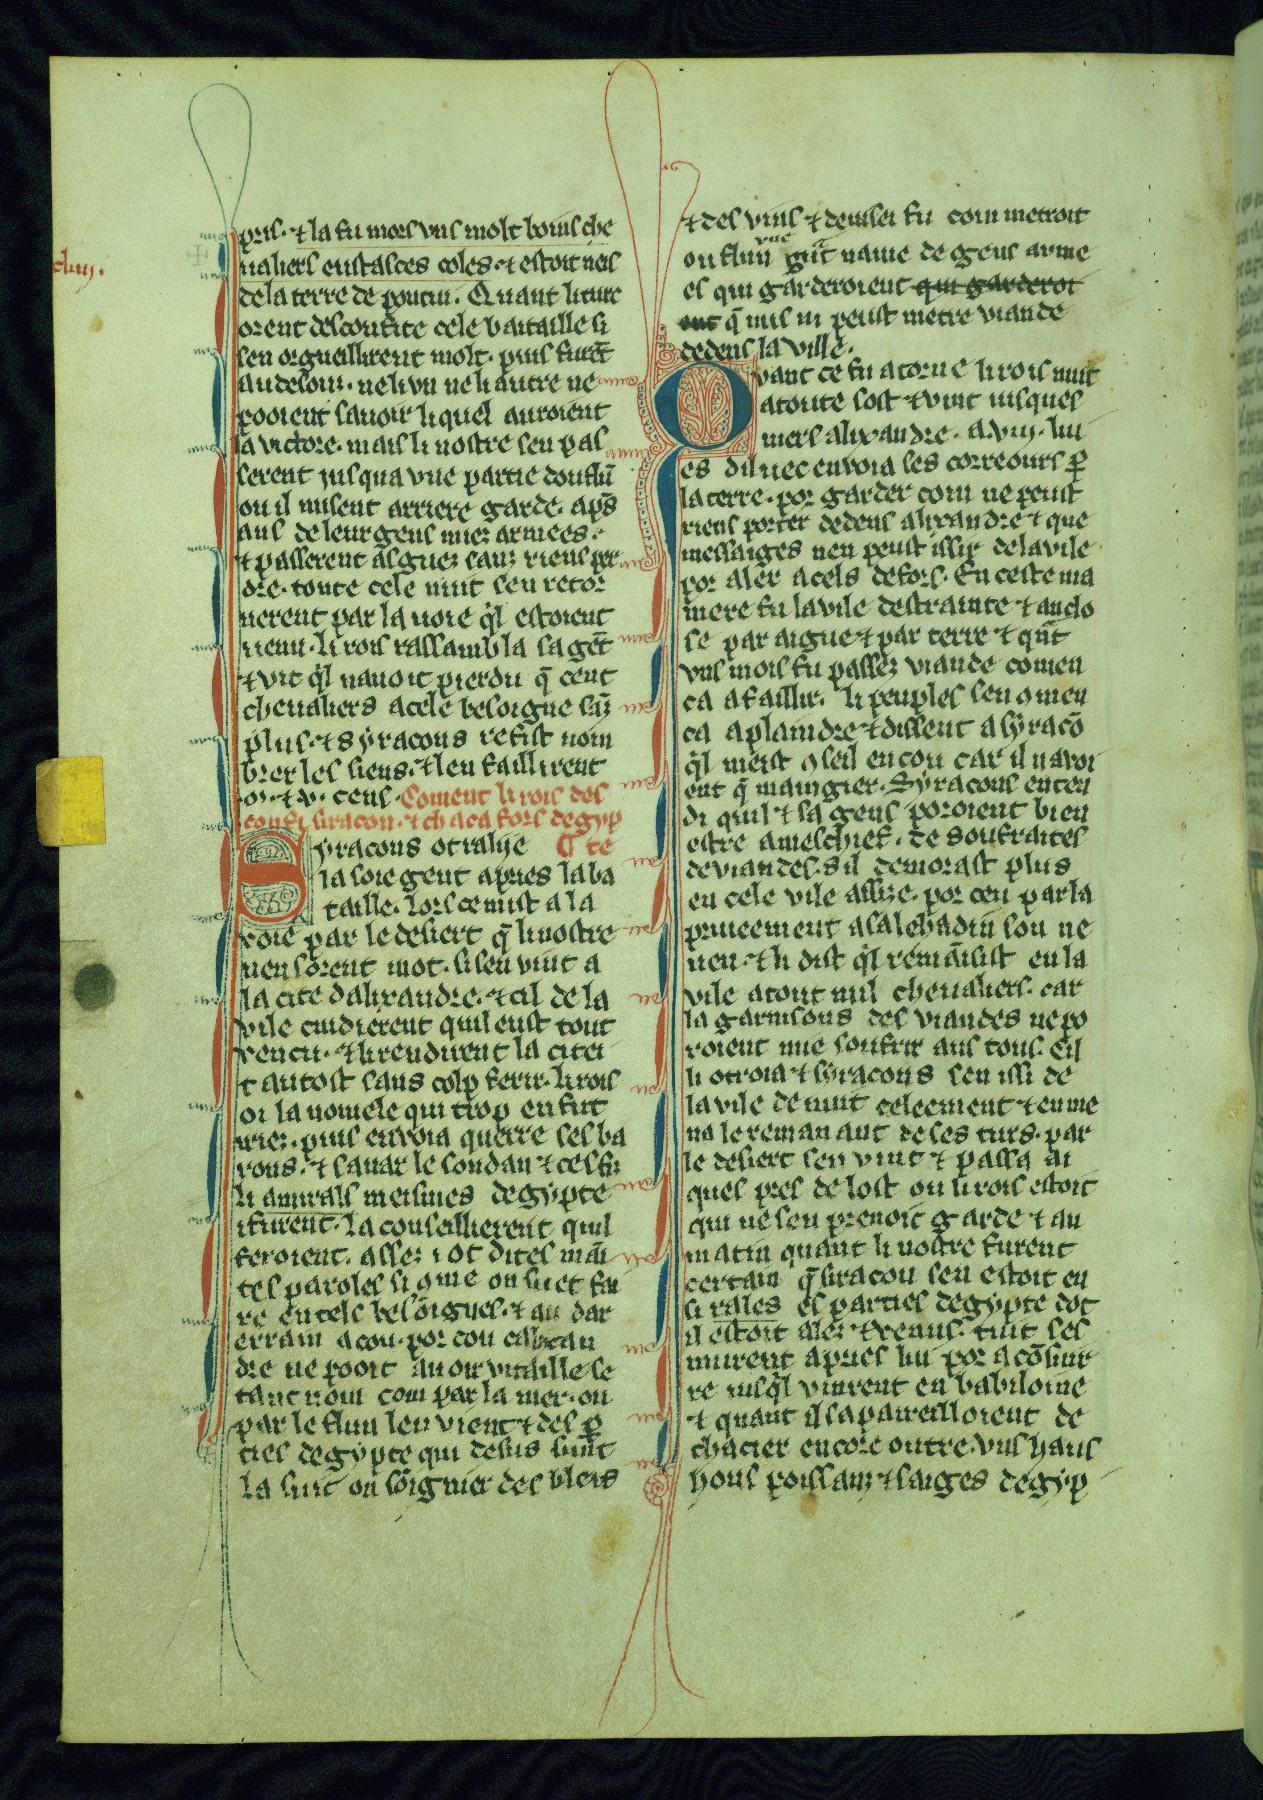 pris. ⁊ la fu mors vns molt bons che
ualiers eustasces coles. ⁊ estoit neis
de la terre de pontiu. Quant li turc
orent desconfite cele bataille si
sen orgueillirent molt. puis furēt
au desour. ne li vn ne li autre ne
pooient sauoir li quel auroient
la victore. mais li nostre sen pas
serent jusqua vne partie dou flū
ou il misent arriere garde. ap̄s
aus de leur gens miez armees.
⁊ passerent as guez sanz riens per
dre. toute cele nuit sen retor
nerent par la uoie q̄l estoient
uenu. li rois rassambla sa gēt
⁊ vit q̄l nauoit pierdu q̄ cent
cheualiers a cele besoigne sās
plus. ⁊ syracons refist nom
brer les siens. ⁊ len faillirent
⁊ v. cens. Coment li rois des
confi siracon. ⁊ chaca fors degyp
Syracons otralije ¶ te
la soie gent apries la ba
taille. lors ce mist a la
voie par le desiert q̄ li nostre
nen sorent mot. si sen vint a
la cite dalixandre. ⁊ cil de la
vile cuidierent quil eust tout
vencu. ⁊ li rendirent la citei
tantost sans colp ferir. li rois
oi la nouele qui trop en fut
iriez. puis envoia querre ses ba
rons. ⁊ sauar le soudan ⁊ ces
li amirals meismes degypte
i furent. la conseillierent quil
feroient. assez i ot dites māi
tes paroles si ome on suet fai
re en tels besoignes. ⁊ au dar
errain a cou. por cou calixan
dre ne pooit auoir vitaille se
tant nom com par la mer. ou
par le flun len vient ⁊ des p̄
ties degypte qui desus sunt
la sunt ou soignier des bleis
⁊ des vins ⁊ deuisei fu com metroit
ou flun vne gūt nauie de gens arme
es qui garderoient qui garderoi
ent q̄ nus ni peust metre viande
dedens la ville.
Quant ce fu atorne li rois muit
a toute sost ⁊ vint iusques
uiers alixandre. a .viij. liu
es diluec envoia ses correours p̄
la terre. por garder com ne peust
riens porter dedens alixandre ⁊ que
messaiges nen peust issir de la vile
por aler a cels defors. En ceste ma
niere fu la vile destrainte ⁊ anclo
se par aigue ⁊ par terre ⁊ qūt
vns mois fu passez viande comen
ca a faillir. li peuples sen omen
ca a plaindre ⁊ dissent a syracō
q̄l mest oseil en cou car il nauoi
ent q̄ maingier. Syracons enten
di quil ⁊ sa gens pooroient bien
estre a meschief. de soufraites
de viandes. sil demorast plus
en cele vile assize. por ceu parla
priueement a salehadin son ne
ueu. ⁊ li dist q̄l remāsist en la
vile a tout mil cheualiers. car
la garnisons des viandes ne po
roient mie soufrir aus tous. cil
li otroia ⁊ syracons sen issi de
la vile de nuit celeement ⁊ enme
na le remanant de ses turs. par
le desiert sen vint ⁊ passa ai
ques pres de lost ou li rois estoit
qui ne sen prenoit garde ⁊ au
matin quant li nostre furent
certain q̄ siracon sen estoit en
si rales es parties degypte dot
il estoit alez ⁊ venus. tuit ses
murent apries lui por acōsiur
re iusq̄l vinrent en babiloine
⁊ quant il sapareilloient de
chacier encore outre. vns haus
hons poissanz ⁊ saiges degyp